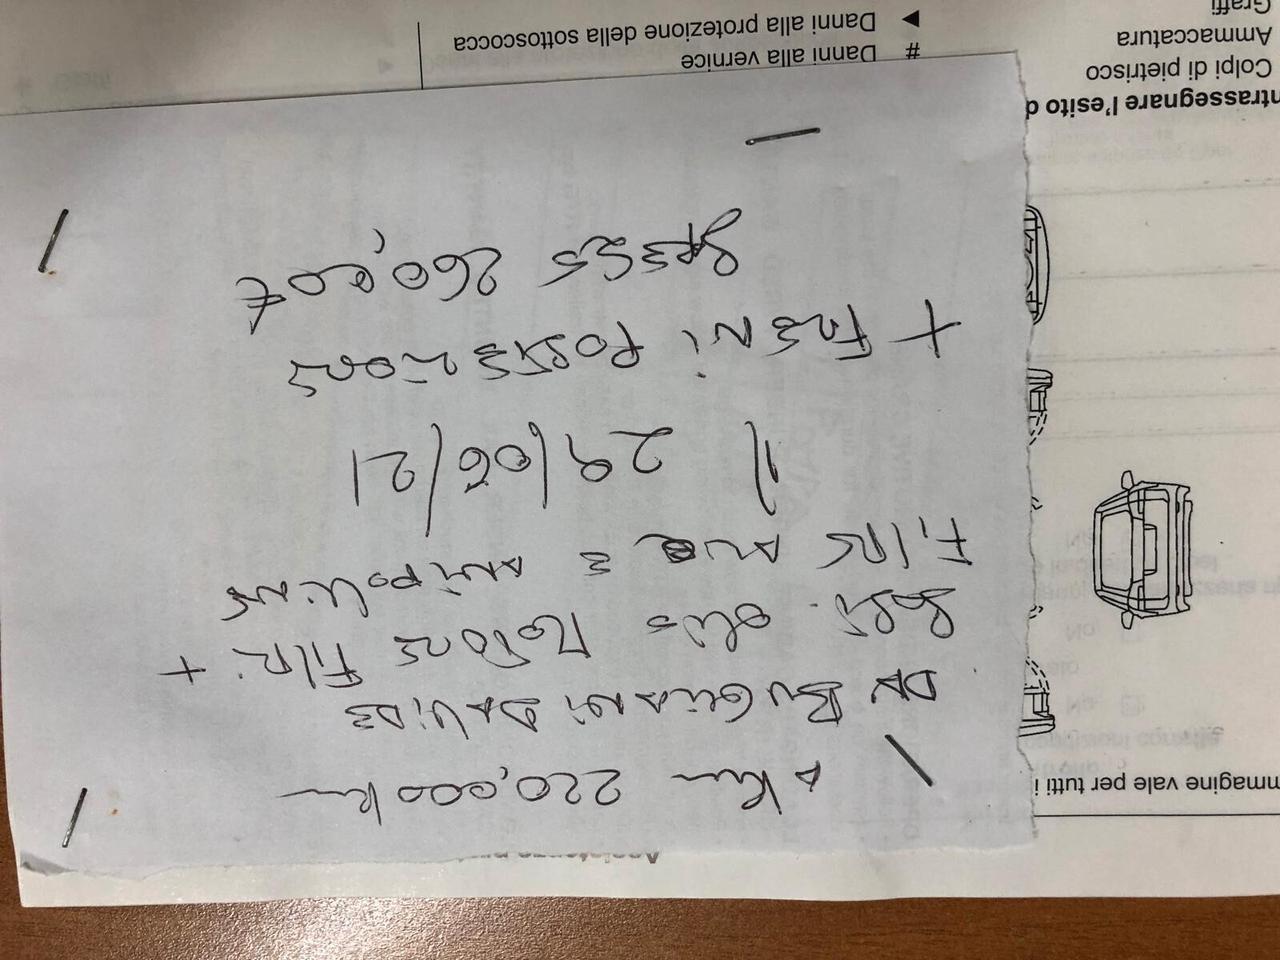 A km 220,000 km
DA BUGLIANI DAVIDE
SOST. OLIO MOTORE FILTRI +
FILTRO ARIA E ANTIPOLLINE
Il 29/06/21
+ FRENI POSTERIORI
SPESO 260,00 €
mmagine vale per tutti i
ntrassegnare l'esito d
Colpi di pietrisco
Ammaccatura
Graffi
# Danni alla vernice
▶ Danni alla protezione della sottoscocca